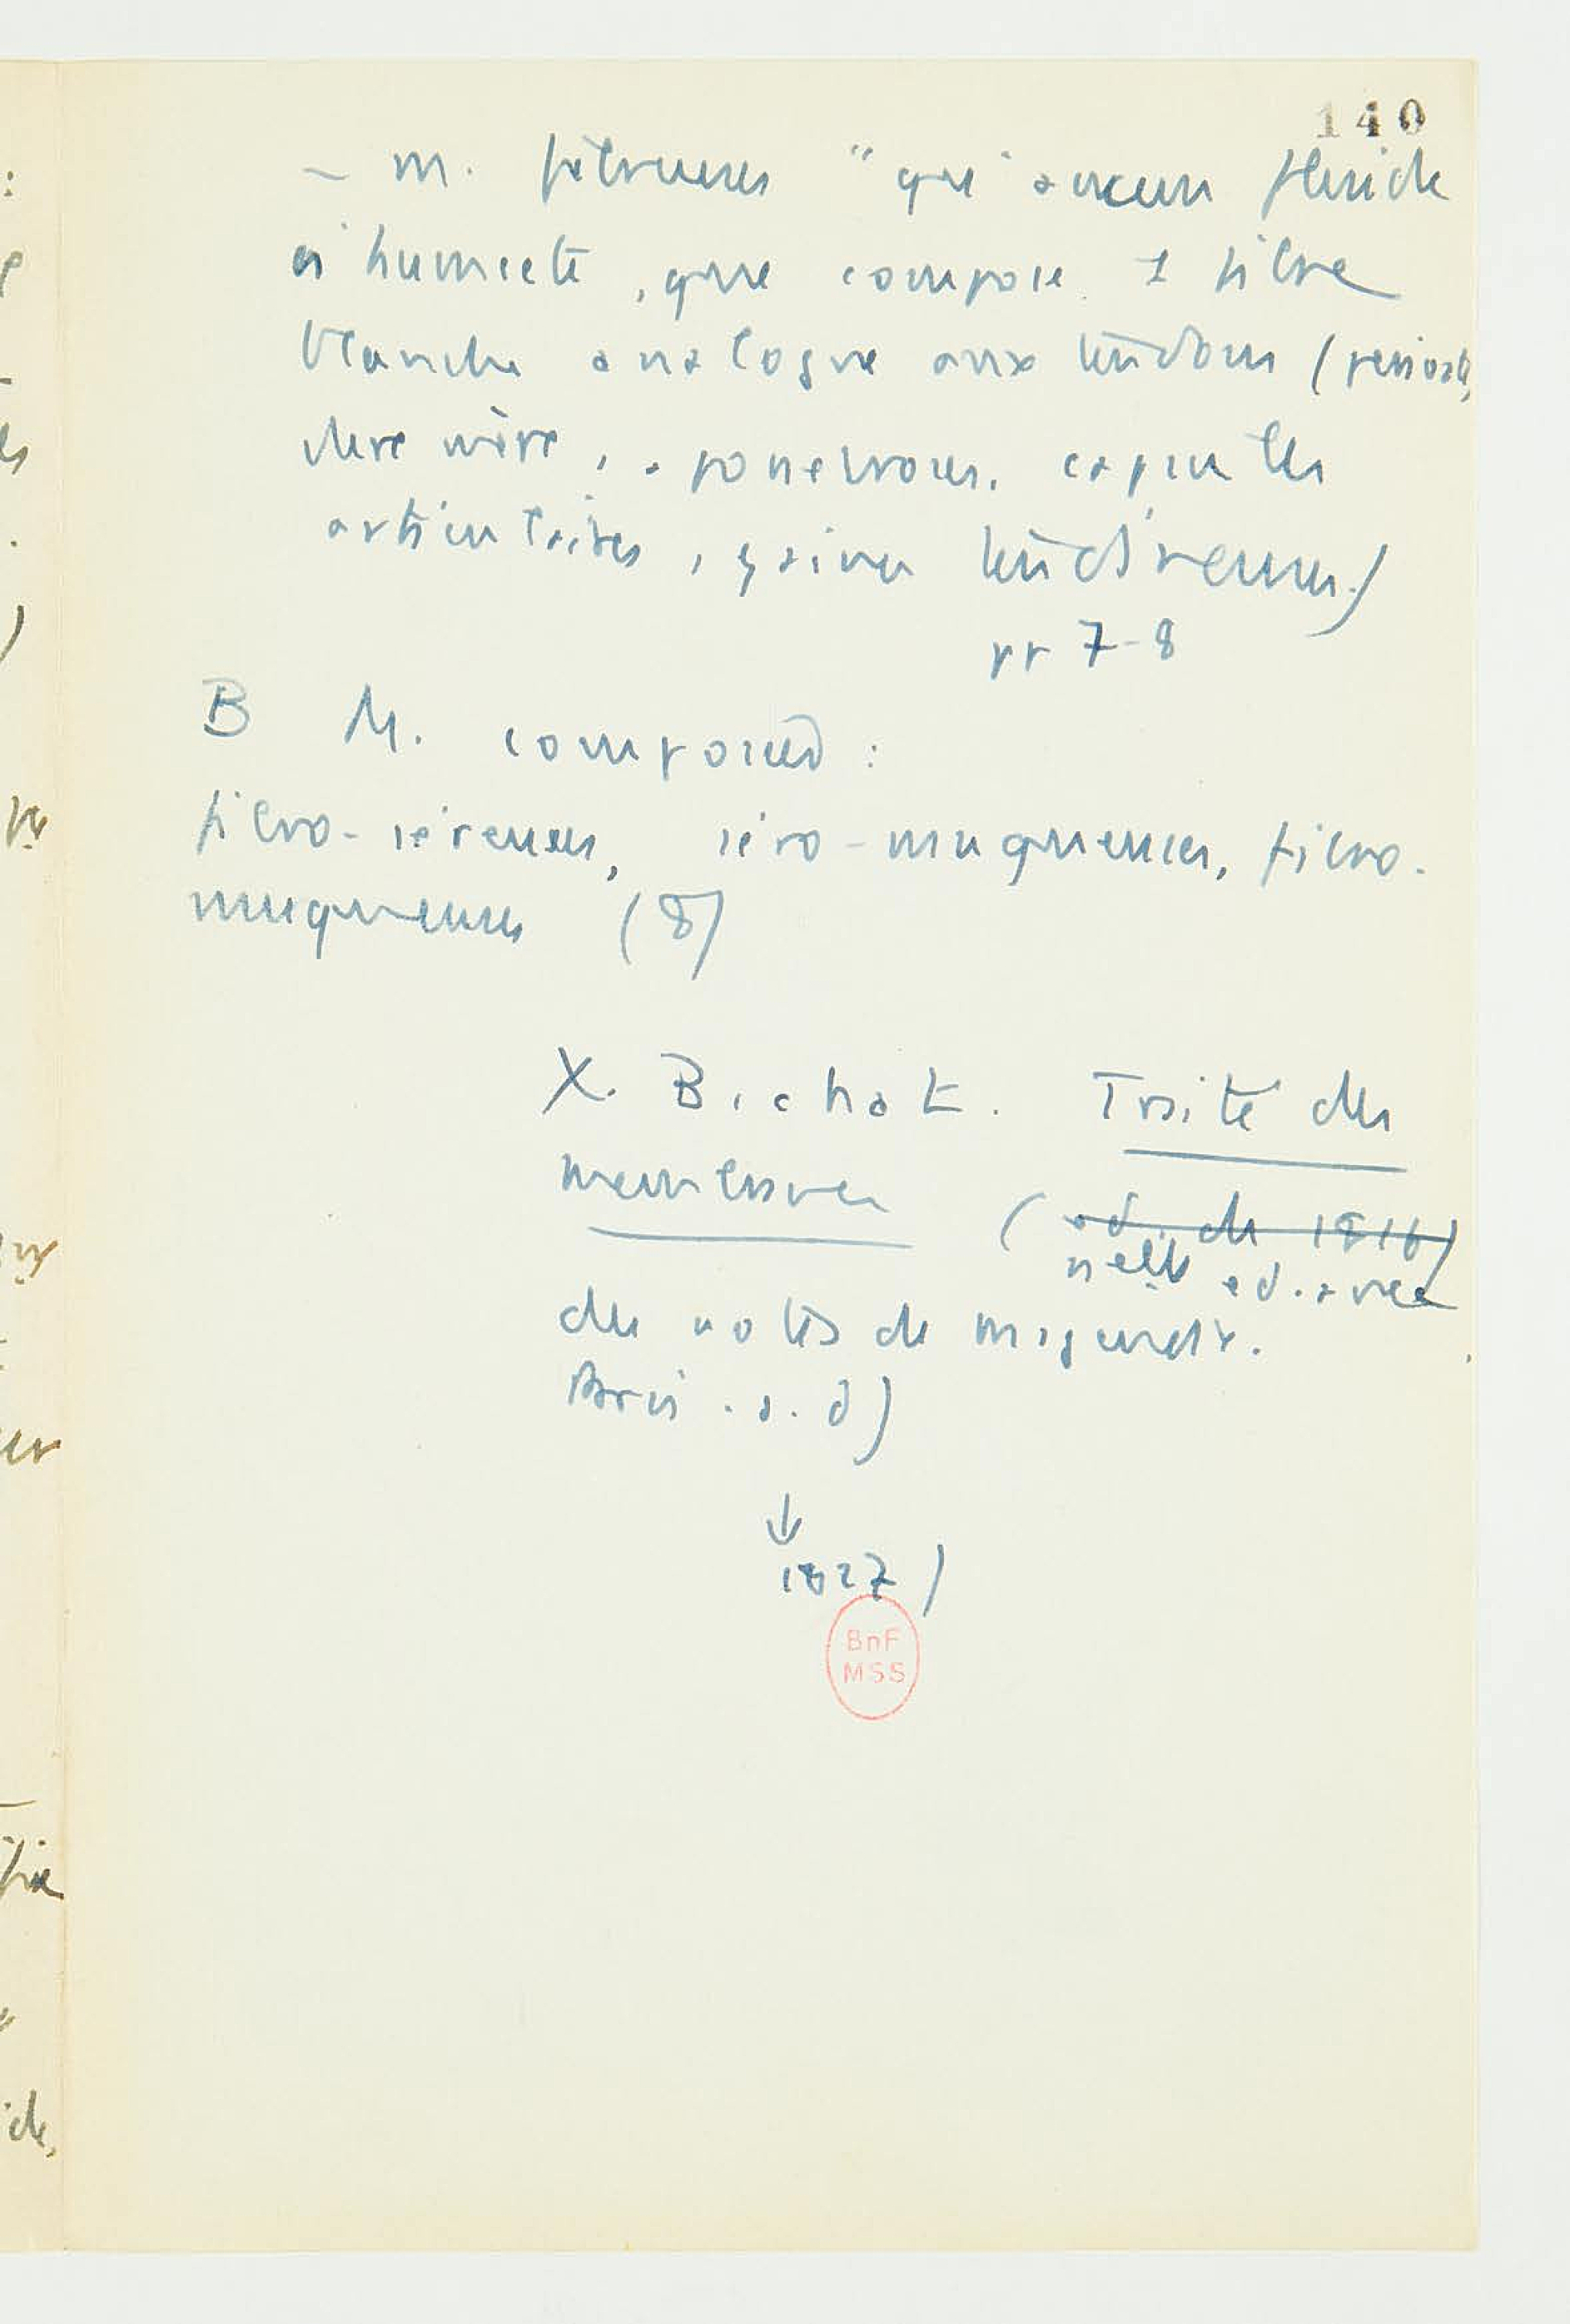 140
– m. fibreuses "que aucun fluide
n'humecte, que compose 1 fibre
blanche analogue aux tendons (périoste,
dure mère, aponévroses, capsules
articulaires, gaines tendineuses)
pp 7-8
B M. composées :
fibro-séreuses, séro-muqueuses, fibro-
muqueuses (8)
X. Bichat. Traité des
membranes (ed. de 1816)
nelle ed. avec
des notes de Magendie.
Paris. s. d)
↓
1827)
BnF
MSS